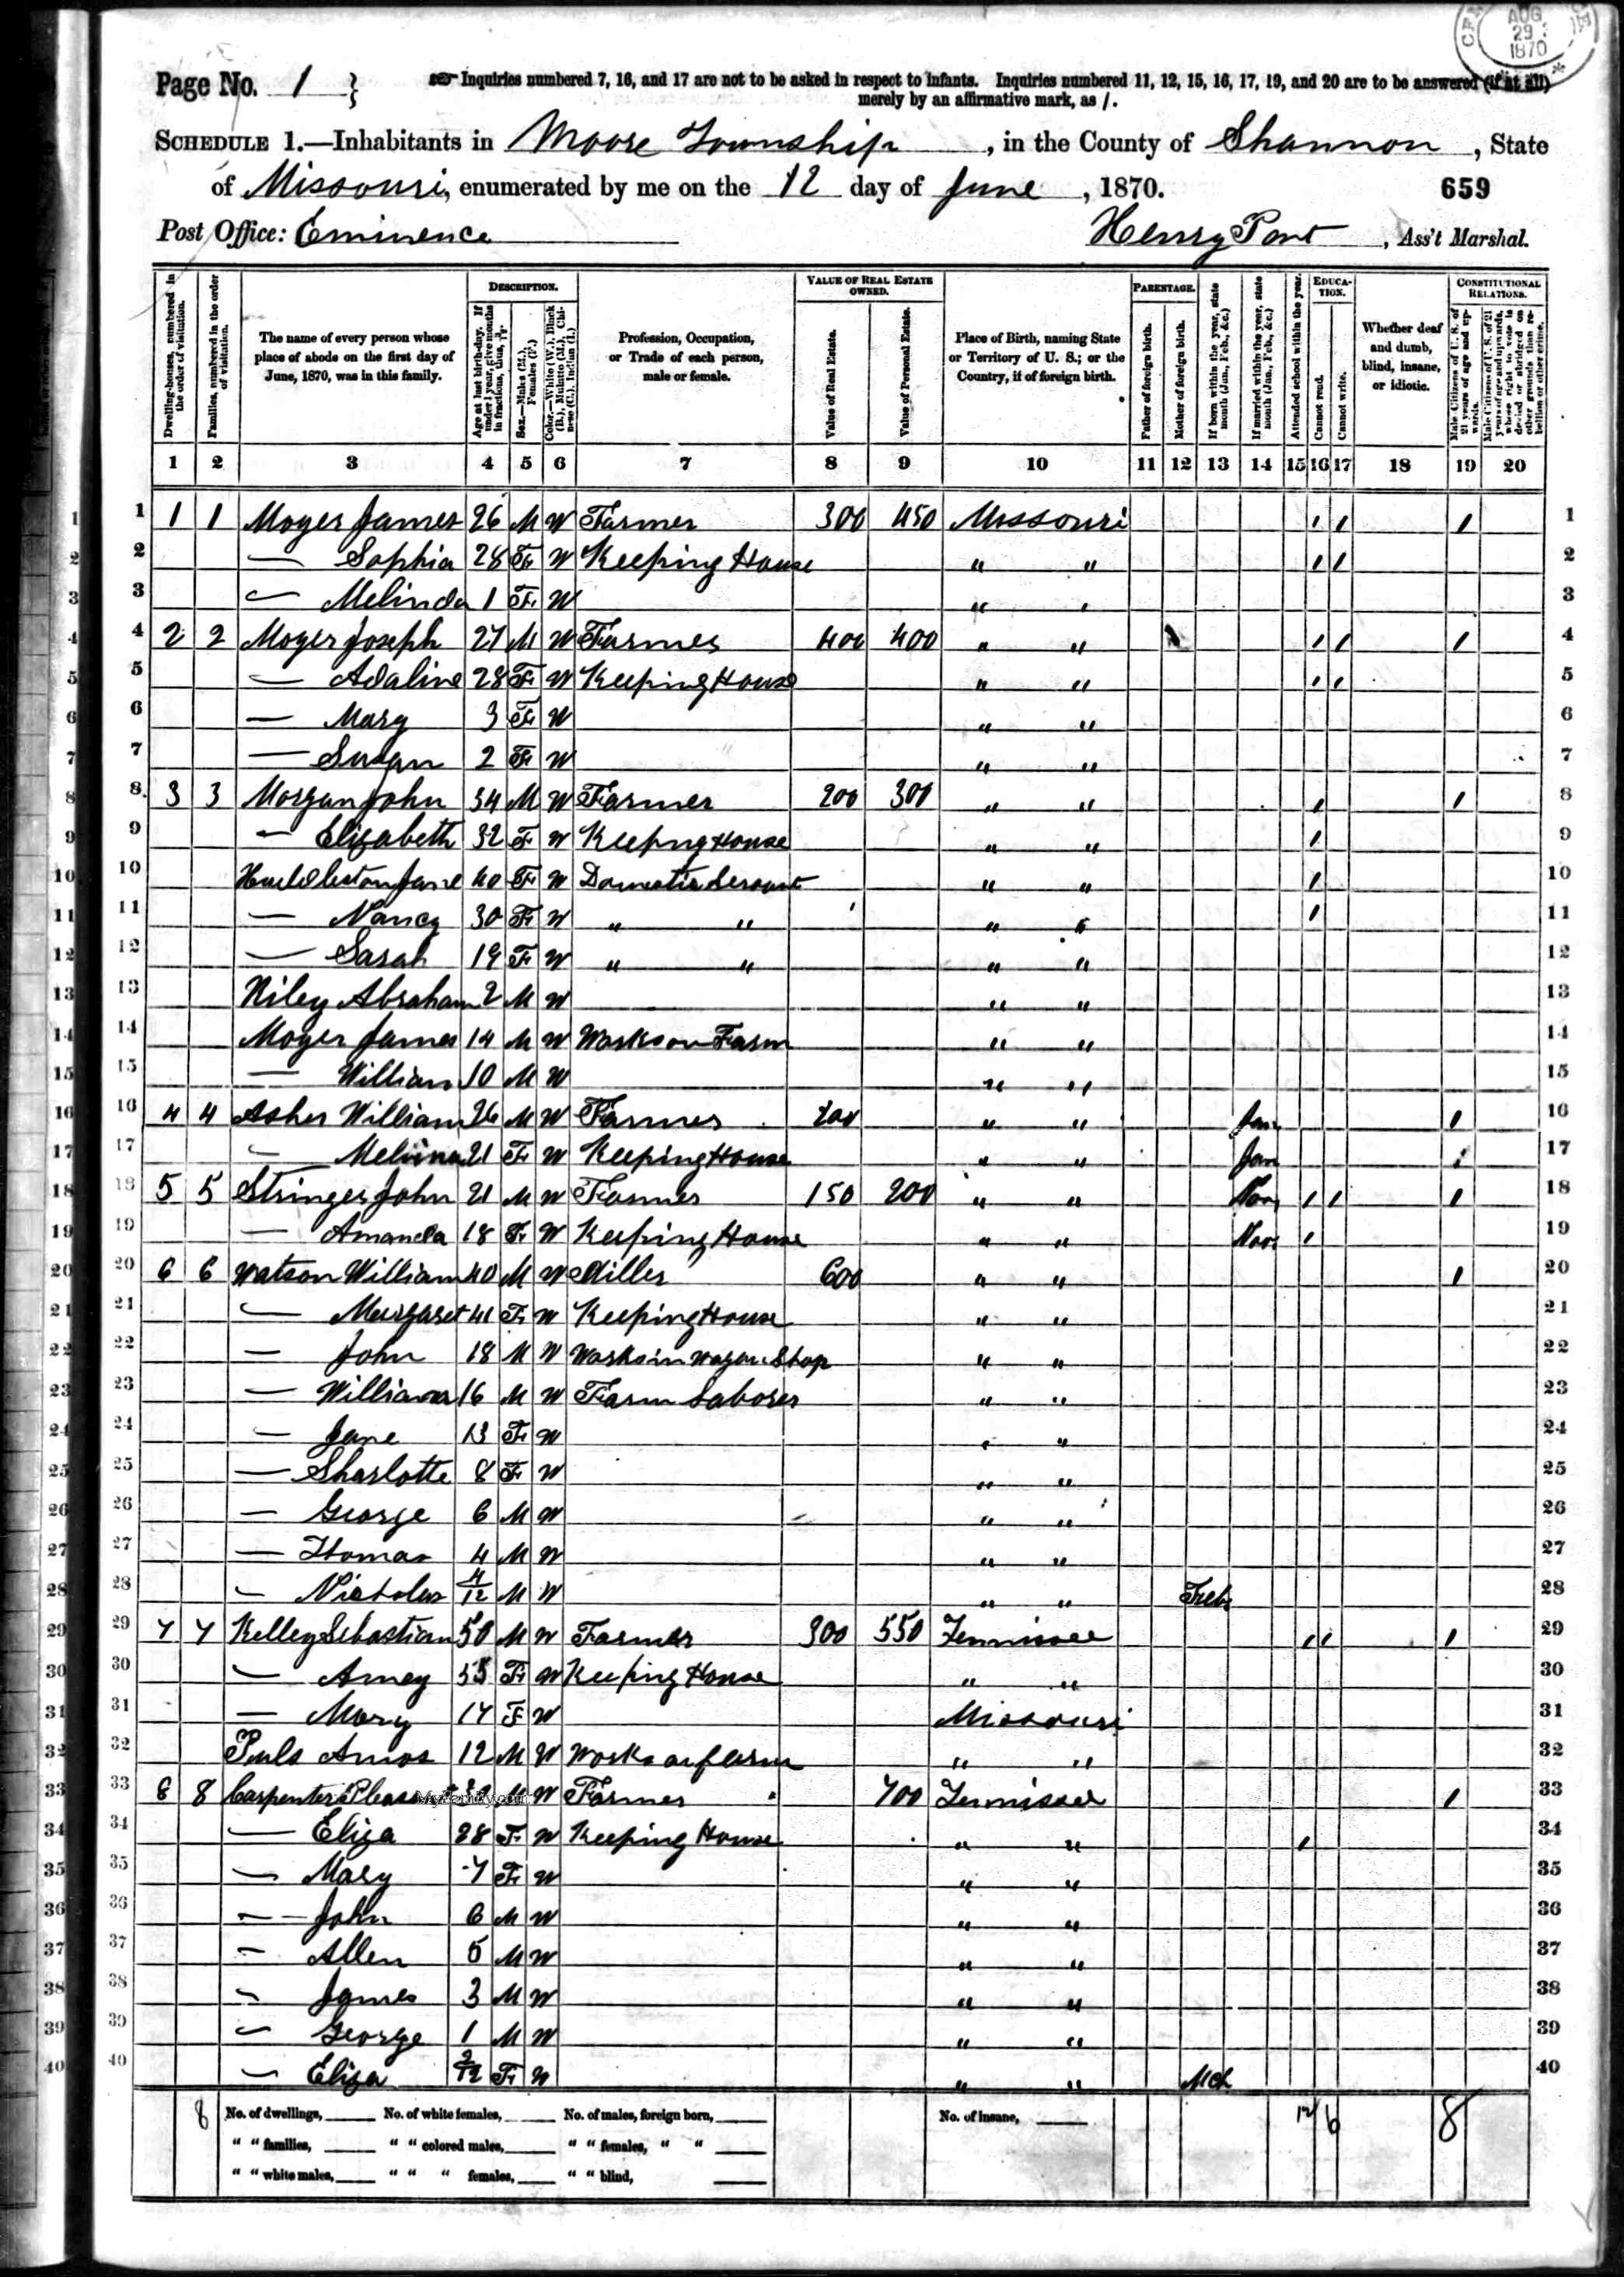 AUG 29 1870
Page No. 1
Inquiries numbered 7, 16, and 17 are not to be asked in respect to infants. Inquiries numbered 11, 12, 15, 16, 17, 19, and 20 are to be answered (if at all)
merely by an affirmative mark, as /.
SCHEDULE 1.—Inhabitants in Moore Township, in the County of Shannon, State
of Missouri, enumerated by me on the 12 day of June, 1870. 659
Post Office: Eminence Henry , Ass't Marshal.
Dwelling-houses, numbered in the order of visitation.
Families, numbered in the order of visitation.
The name of every person whose place of abode on the first day of June, 1870, was in this family.
DESCRIPTION.
Age at last birth-day. If under 1 year, give months in fractions, thus, 3/12
Sex.—Males (M.), Females (F.)
Color.—White (W.), Black (B.), Mulatto (M.), Chinese (C.), Indian (I.)
Profession, Occupation, or Trade of each person, male or female.
VALUE OF REAL ESTATE OWNED.
Value of Real Estate.
Value of Personal Estate.
Place of Birth, naming State or Territory of U. S.; or the Country, if of foreign birth.
PARENTAGE.
Father of foreign birth.
Mother of foreign birth.
If born within the year, state month (Jan., Feb., &c.)
If married within the year, state month (Jan., Feb., &c.)
EDUCATION.
Attended school within the year.
Cannot read.
Cannot write.
Whether deaf and dumb, blind, insane, or idiotic.
CONSTITUTIONAL RELATIONS.
Male Citizens of U. S. of 21 years of age and upwards.
Male Citizens of U. S. of 21 years of age and upwards, whose right to vote is denied or abridged on other grounds than rebellion or other crime.
1 2 3 4 5 6 7 8 9 10 11 12 13 14 15 16 17 18 19 20
1 1 1 Moyer James 26 M W Farmer 300 450 Missouri / / / 1
2 — Sophia 28 F W Keeping House " " / / 2
3 — Melinda 1 F W " " 3
4 2 2 Moyer Joseph 27 M W Farmer 400 400 " " / / / 4
5 — Adaline 28 F W Keeping House " " / / 5
6 — Mary 3 F W " " 6
7 — Susan 2 F W " " 7
8 3 3 Morgan John 34 M W Farmer 200 300 " " / / 8
9 — Elizabeth 32 F W Keeping House " " / 9
10 Jane 40 F W Domestic Servant " " / 10
11 — Nancy 30 F W " " " " / 11
12 — Sarah 19 F W " " " " 12
13 Abraham 2 M W " " 13
14 Moyer James 14 M W Works on Farm " " 14
15 — William 10 M W " " 15
16 4 4 Asher William 26 M W Farmer 200 " " Jan / 16
17 — 21 F W Keeping House " " Jan / 17
18 5 5 Stringer John 21 M W Farmer 150 200 " " Nov / / / 18
19 — Amanda 18 F W Keeping House " " Nov / 19
20 6 6 Watson William 40 M W Miller 600 " " / 20
21 — Margaret 41 F W Keeping House " " 21
22 — John 18 M W Works in Wagon Shop " " 22
23 — William 16 M W Farm Laborer " " 23
24 — Jane 13 F W " " 24
25 — Sharlotte 8 F W " " 25
26 — George 6 M W " " 26
27 — Thomas 4 M W " " 27
28 — Nicholas 4/12 M W " " Feb 28
29 7 7 Kelley Sebastian 50 M W Farmer 300 550 Tennissee / / / 29
30 — Amey 55 F W Keeping House " " 30
31 — Mary 17 F W Missouri 31
32 Amos 12 M W Works on farm " " 32
33 8 8 Carpenter M W Farmer 700 Tennissee / 33
34 — Eliza 28 F W Keeping House " " / 34
35 — Mary 7 F W " " 35
36 — John 6 M W " " 36
37 — Allen 5 M W " " 37
38 — James 3 M W " " 38
39 — George 1 M W " " 39
40 — Eliza 2/12 F W " " Mch 40
MyFamily.com
8 No. of dwellings, No. of white females, No. of males, foreign born, No. of insane, 12 6 8
" " families, " " colored males, " " females, " "
" " white males, " " " females, " " blind,